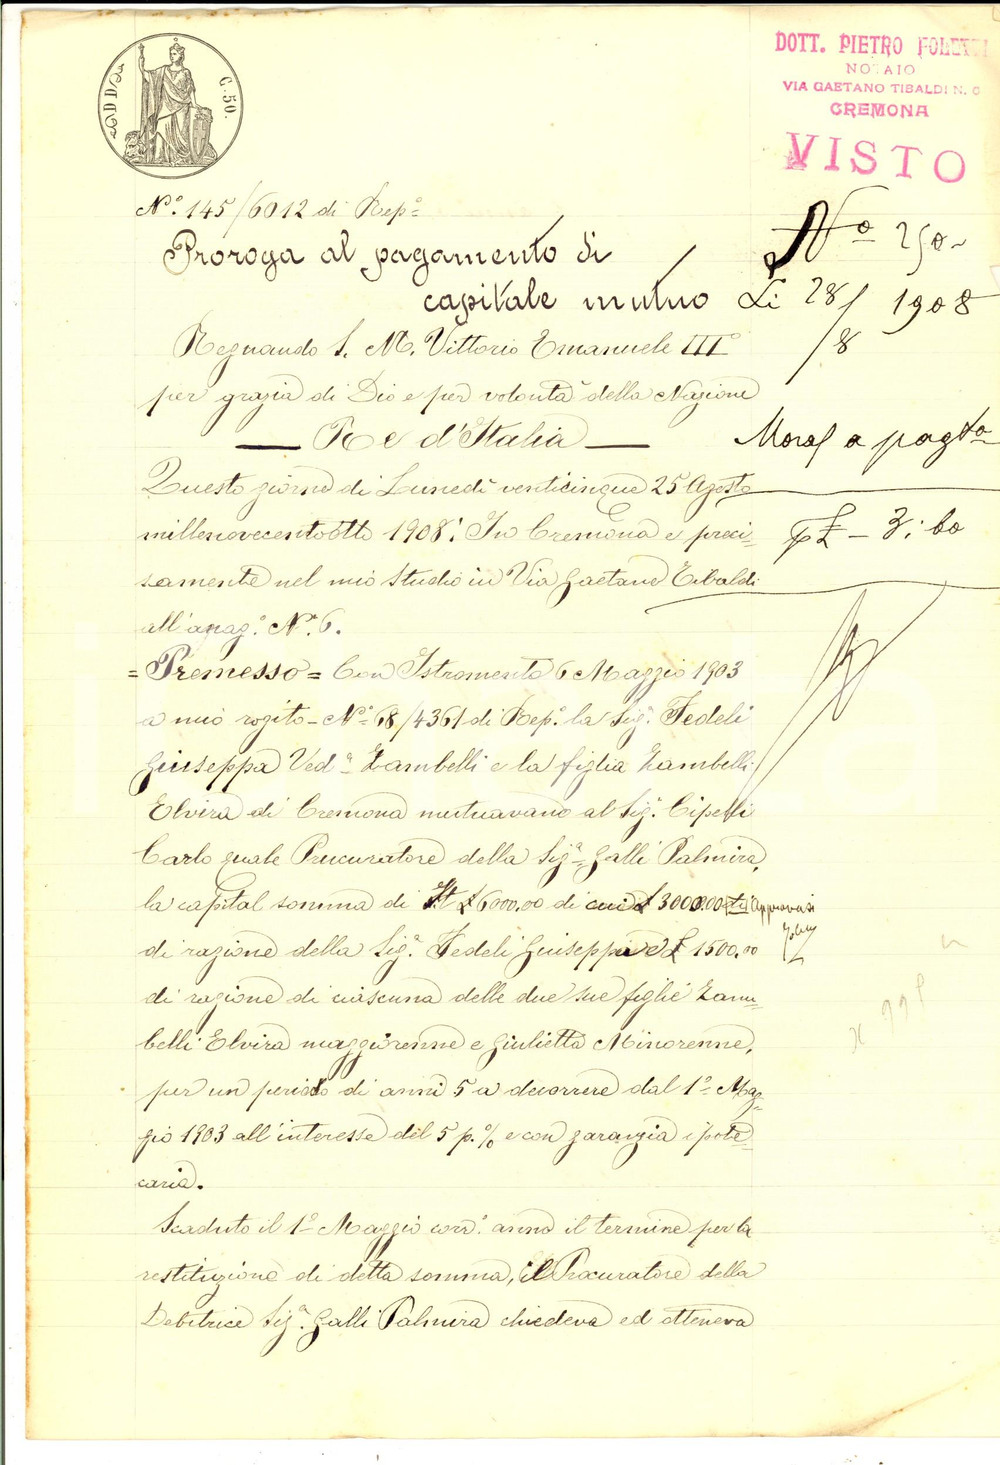 C. 50.
DOTT. PIETRO FOLETTI
NOTAIO
VIA GAETANO TIBALDI N. 6
CREMONA
VISTO
N.º 145/6012 di Repº
Proroga al pagamento di
capitale mutuo
Nº 250
Li 28/8 1908
Regnando S. M. Vittorio Emanuele IIIº
per grazia di Dio e per volontà della Nazione
— Re d'Italia —
a pagto
Questo giorno di Lunedì venticinque 25 Agosto
millenovecentotto 1908. In Cremona e preci-
£ 3:60
samente nel mio Studio in Via Gaetano Tibaldi
all'anag.º N.º 6.
= Premesso = Con Istromento 6 Maggio 1903
a mio rogito - Nº 68/4361 di Repº la Sig.ª Fedeli
Giuseppa Ved.ª Zambelli e la figlia Zambelli
Elvira di Cremona mutuavano al Sig. Cipelli
Carlo quale Procuratore della Sig.ª Galli Palmira,
la capital somma di It £ 6000.00 di cui £ 3000.00 approvasi
di ragione della Sig.ª Fedeli Giuseppa e £ 1500.00
di ragione di ciascuna delle due sue figlie Zam-
belli Elvira maggiorenne e Giulietta Minorenne,
per un periodo di anni 5 a decorrere dal 1º Mag-
gio 1903 all'interesse del 5 p. % e con garanzia ipote-
caria.
Scaduto il 1º Maggio corr.º anno il termine per la
restituzione di detta somma, il Procuratore della
Debitrice Sig.ª Galli Palmira chiedeva ed otteneva